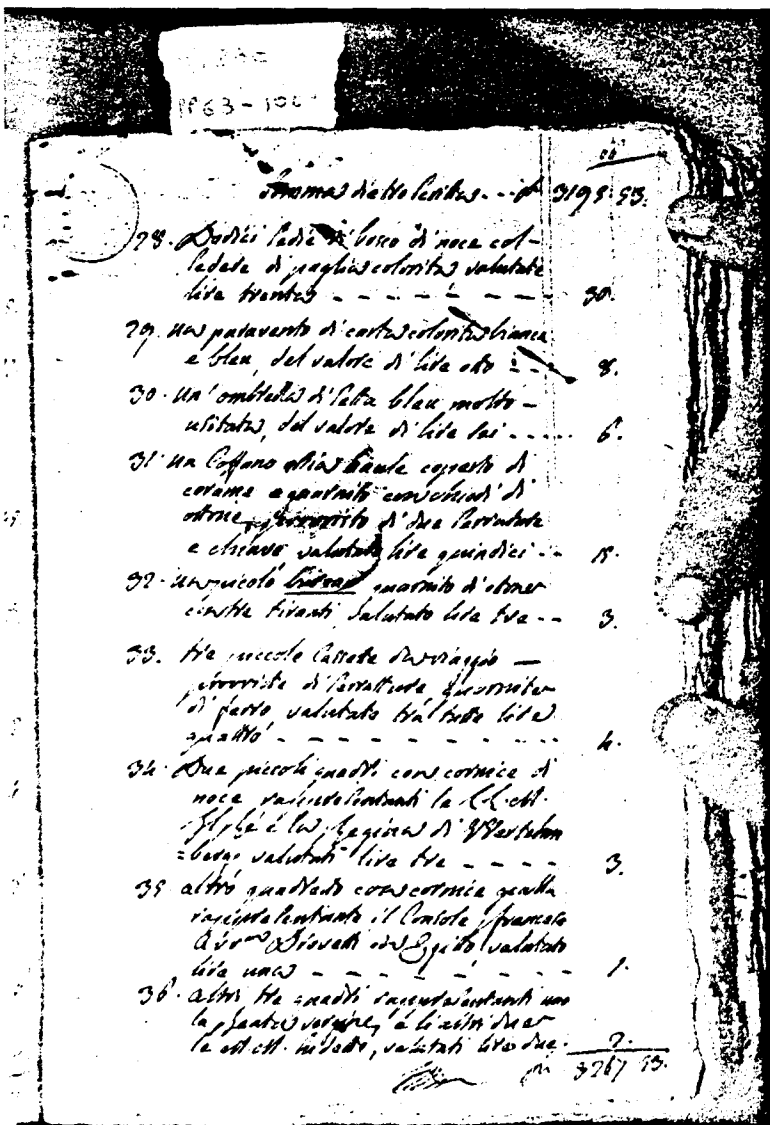 PP63-106
Somma diётro Scritta - - £ 3195.93.
28. Dodici sedie di bosco di noce col-
sedere di paglia colorita valutate
lire trenta - - - - - - 30.
29. Un paravento di carta colorita bianca
e bleu, del valore di lire otto - - 8.
30. Un'ombrella di setta bleu molto -
usitata, del valore di lire sei - - - - 6.
31. Un Coffano ossia baule coperto di
corame e guarnito con chiodi di
ottone, provvisto di due serrature
e chiave valutato lire quindici - - 15.
32. Un piccolo bureau guarnito d'ottone
con tre tiranti, valutato lire tre - - 3.
33. tre piccole Cassete da viaggio -
provviste di serrature guarnite
di ferro valutato tra tutte lire
quattro - - - - - - - - 4.
34. Due piccoli quadri con cornice di
noce rappresentanti le LL. MM.
il Re è la Regina di Wertem
=berg, valutati lire tre - - - - 3.
35 altro quadretto con cornice gialla
rappresentante il Console francese
Drovetti in Egitto valutato
lire una - - - - - - 1.
36. altri tre quadri rappresentanti uno
la Santa vergine, è li altri due
le MM. MM. sudette, valutati lire due. 2.
3267 93.